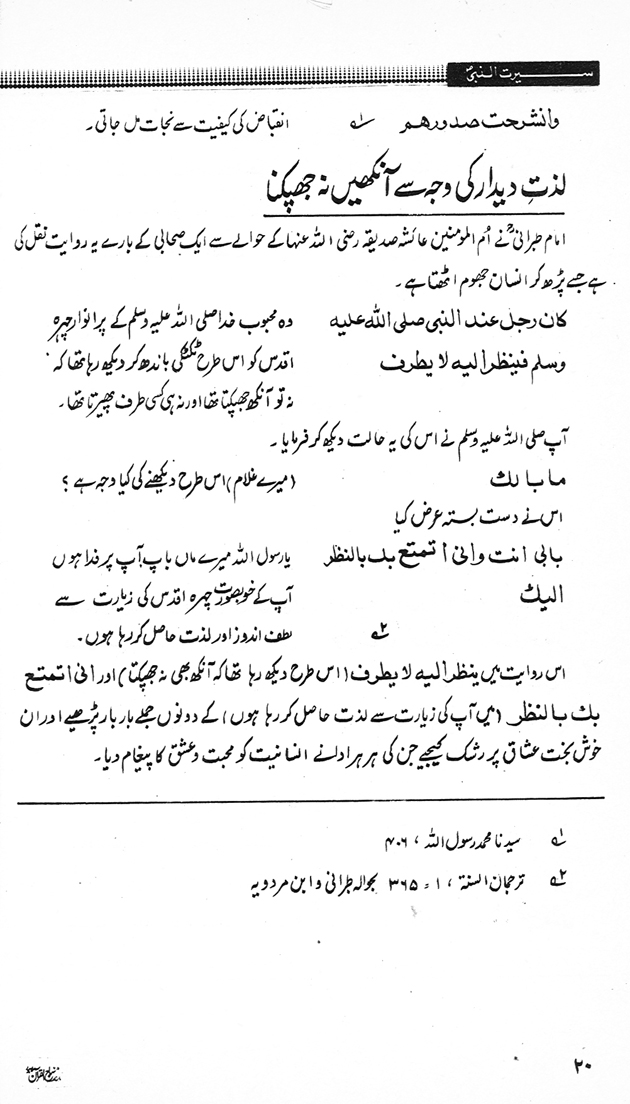 سیرت النبیؐ
وانشرحت صدورهم ۱؎ انقباض کی کیفیت سے نجات مل جاتی۔
لذتِ دیدار کی وجہ سے آنکھیں نہ جھپکنا
امام طبرانیؒ نے اُم المومنین عائشہ صدیقہ رضی اللہ عنہا کے حوالے سے ایک صحابی کے بارے یہ روایت نقل کی
ہے جسے پڑھ کر انسان جھوم اٹھتا ہے۔
كان رجل عند النبی صلی الله علیه وہ محبوب خدا صلی اللہ علیہ وسلم کے پر انوار چہرہ
وسلم فینظر الیه لا یطرف اقدس کو اس طرح ٹکٹکی باندھ کر دیکھ رہا تھا کہ
نہ تو آنکھ جھپکتا تھا اور نہ ہی کسی طرف پھیرتا تھا۔
آپ صلی اللہ علیہ وسلم نے اس کی یہ حالت دیکھ کر فرمایا۔
ما بالك (میرے غلام) اس طرح دیکھنے کی کیا وجہ ہے؟
اس نے دست بستہ عرض کیا
بابی انت وانی اتمتع بك بالنظر یا رسول اللہ میرے ماں باپ آپ پر فدا ہوں
الیك آپ کے خوبصورت چہرہ اقدس کی زیارت سے
۲؎ لطف اندوز اور لذت حاصل کر رہا ہوں۔
اس روایت میں ینظر الیه لا یطرف (اس طرح دیکھ رہا تھا کہ آنکھ بھی نہ جھپکتا) اور انی اتمتع
بك بالنظر (میں آپ کی زیارت سے لذت حاصل کر رہا ہوں) کے دونوں جملے بار بار پڑھیے اور ان
خوش بخت عشاق پر رشک کیجیے جن کی ہر ہر ادا نے انسانیت کو محبت و عشق کا پیغام دیا۔
۱؎ سیدنا محمد رسول اللہ، ۴۰۶
۲؎ ترجمان السنۃ، ۱ = ۳۶۵ بحوالہ طبرانی و ابن مردویہ
۲۰